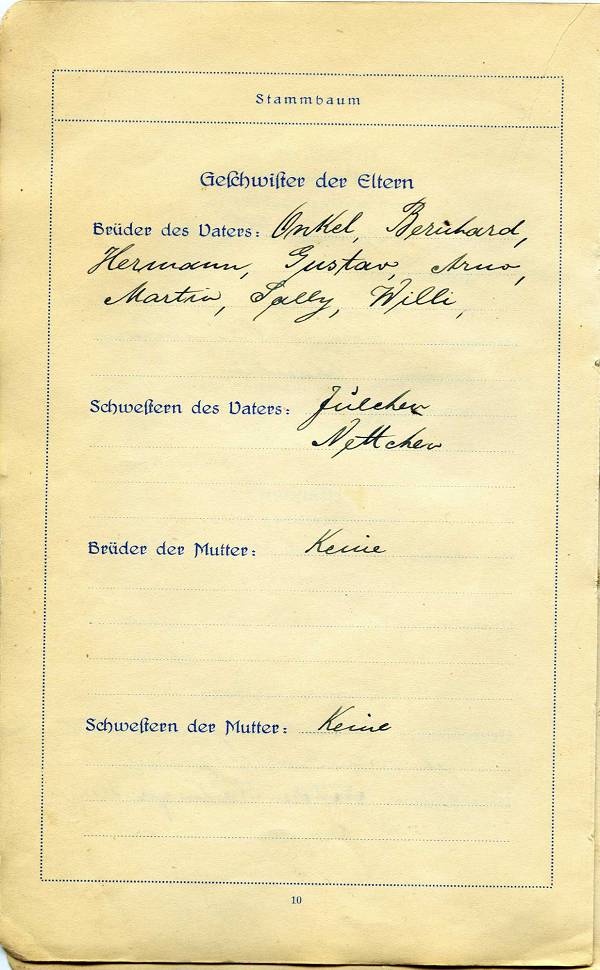 Stammbaum
Geschwister der Eltern
Brüder des Vaters: Onkel, Bernhard,
Hermann, Gustav, Arno,
Martin, Sally, Willi,
Schwestern des Vaters: Jülchen
Nettchen
Brüder der Mutter: Keine
Schwestern der Mutter: Keine
10